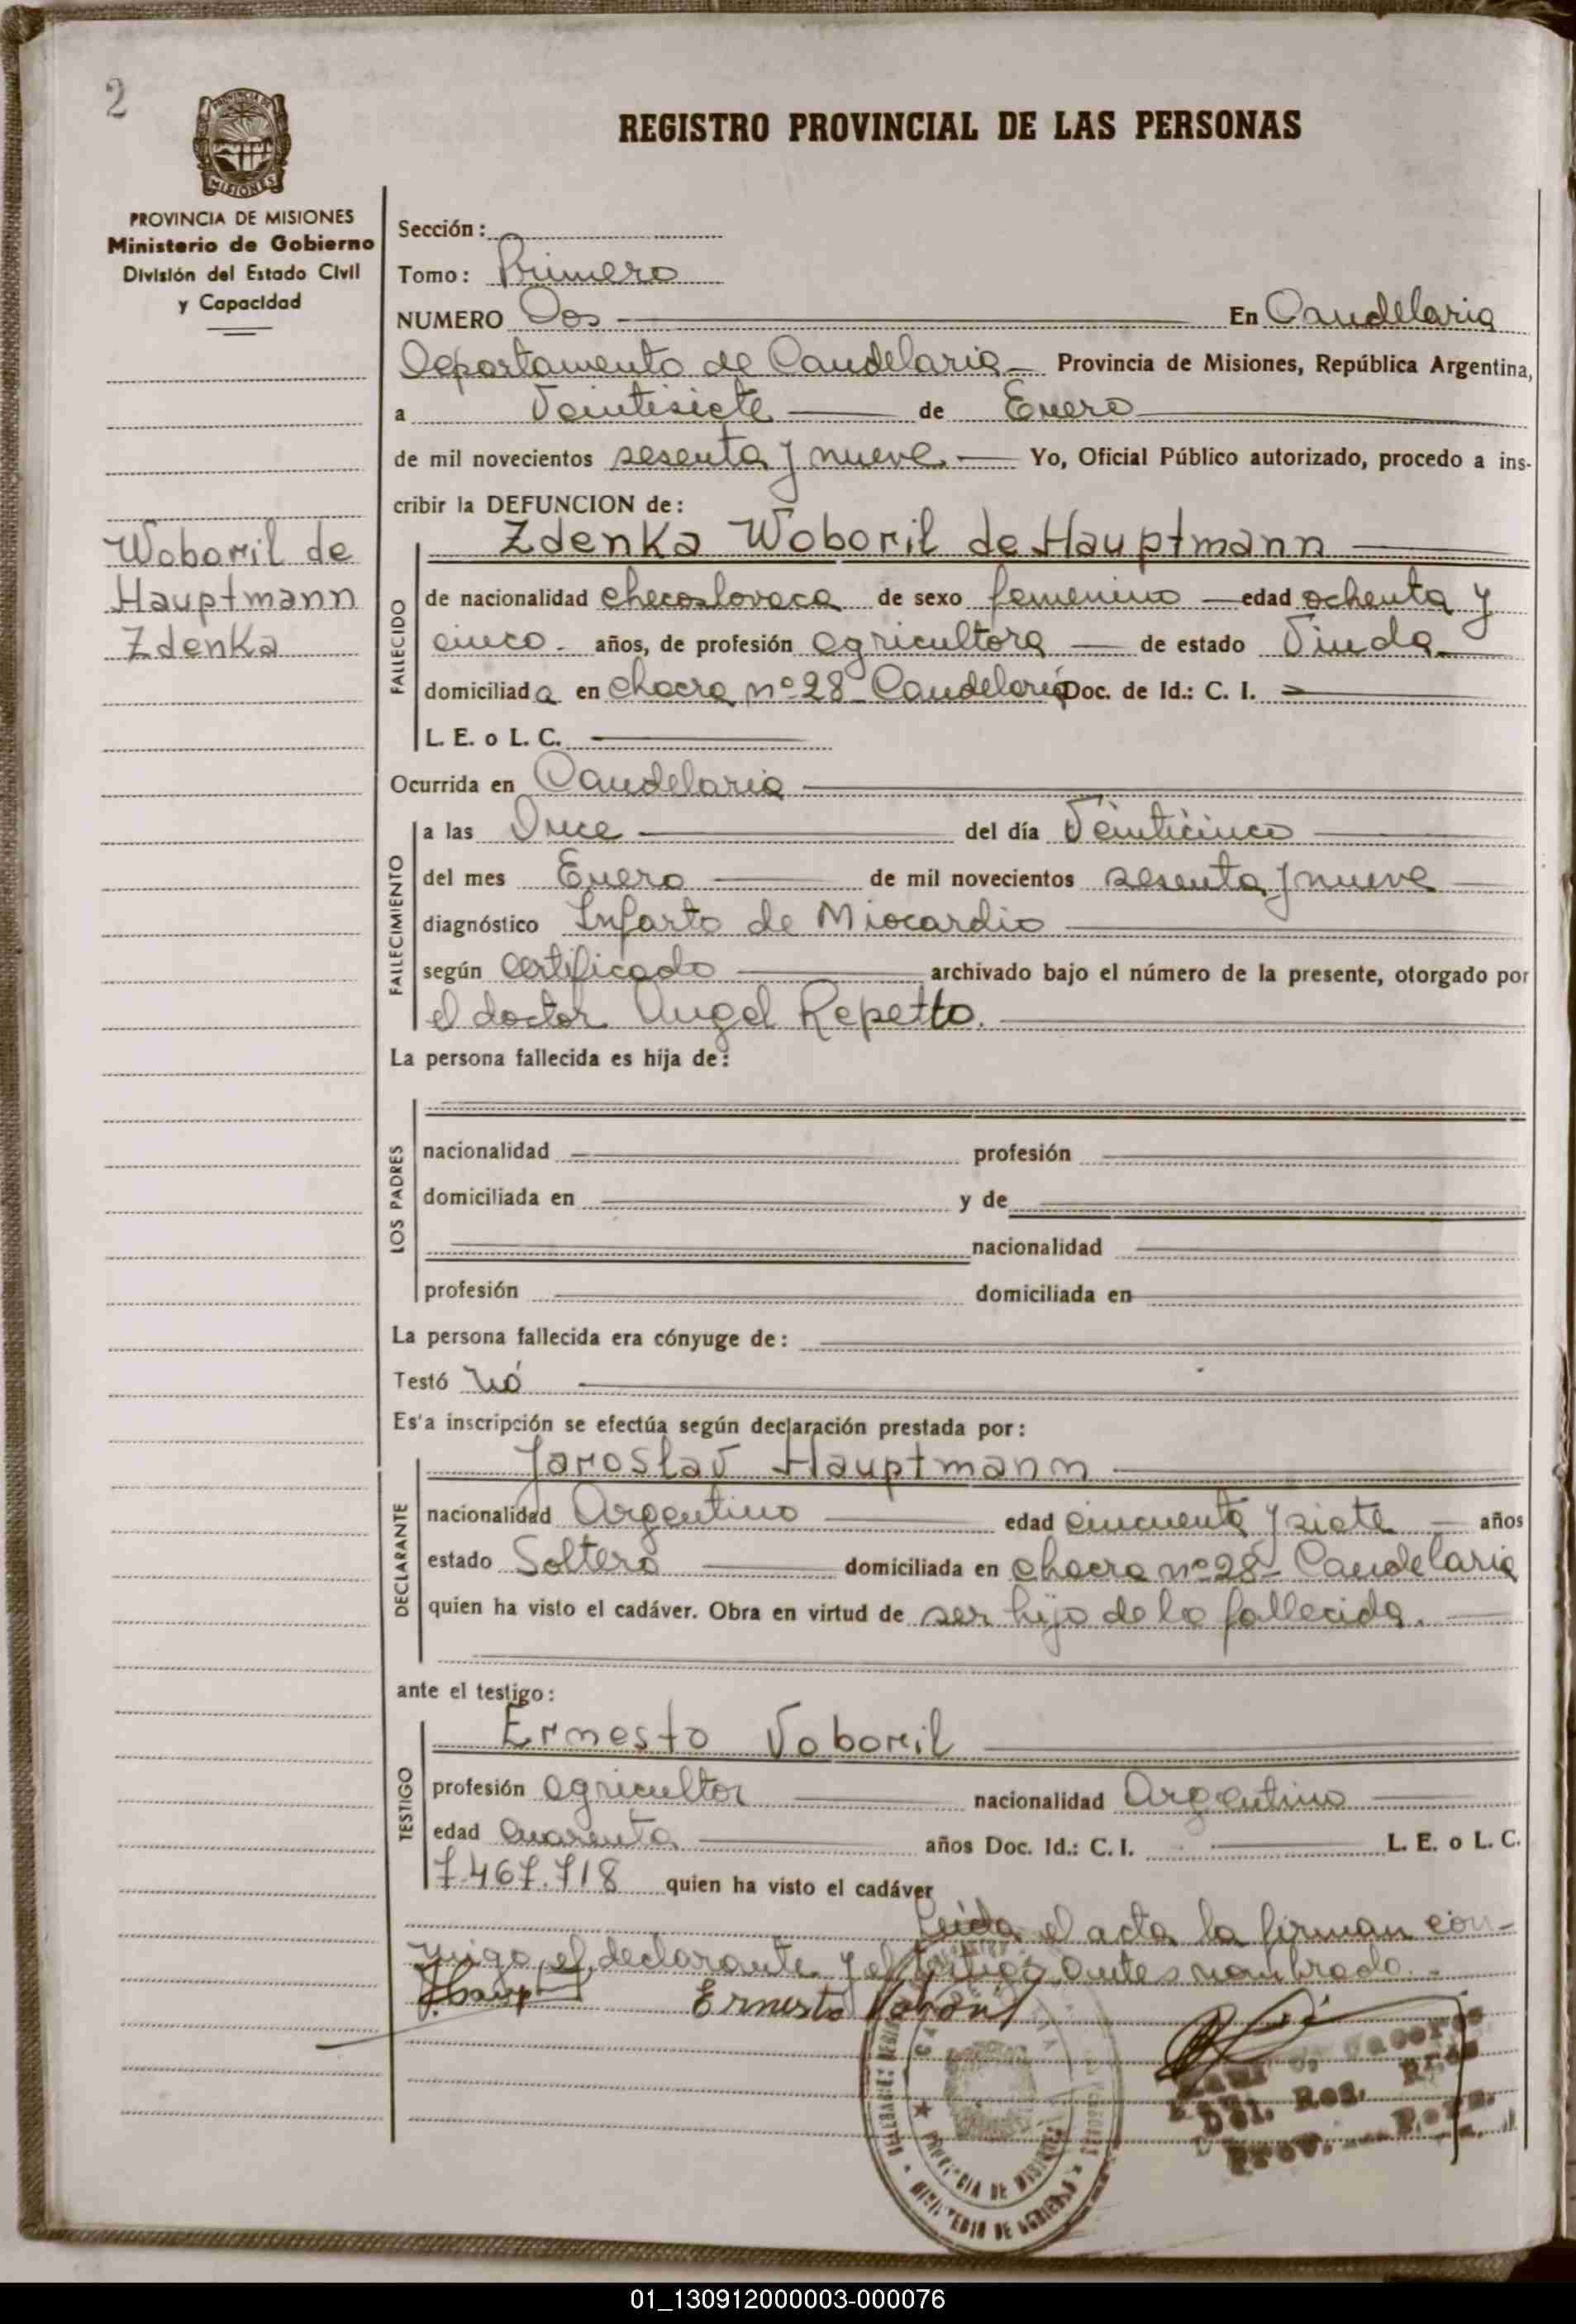 2
PROVINCIA DE
MISIONES
REGISTRO PROVINCIAL DE LAS PERSONAS
PROVINCIA DE MISIONES
Ministerio de Gobierno
División del Estado Civil
y Capacidad
Woboril de
Hauptmann
Zdenka
Sección:
Tomo: Primero
NUMERO Dos En Candelaria
Departamento de Candelaria Provincia de Misiones, República Argentina,
a Veintisiete de Enero
de mil novecientos sesenta y nueve Yo, Oficial Público autorizado, procedo a ins-
cribir la DEFUNCION de:
Zdenka Woboril de Hauptmann
FALLECIDO
de nacionalidad checoslovaca de sexo femenino edad ochenta y
cinco años, de profesión agricultora de estado Viuda
domiciliada en chacra nº 28 - Candelaria Doc. de Id.: C. I.
L. E. o L. C.
Ocurrida en Candelaria
FALLECIMIENTO
a las Once del día Veinticinco
del mes Enero de mil novecientos sesenta y nueve
diagnóstico Infarto de Miocardio
según certificado archivado bajo el número de la presente, otorgado por
el doctor Angel Repetto.
La persona fallecida es hija de:
LOS PADRES
nacionalidad profesión
domiciliada en y de
nacionalidad
profesión domiciliada en
La persona fallecida era cónyuge de:
Testó Nó
Es'a inscripción se efectúa según declaración prestada por:
Jaroslav Hauptmann
DECLARANTE
nacionalidad Argentino edad cincuenta y siete años
estado Soltero domiciliada en chacra nº 28 - Candelaria
quien ha visto el cadáver. Obra en virtud de ser hijo de la fallecida.
ante el testigo:
Ernesto Voboril
TESTIGO
profesión agricultor nacionalidad Argentino
edad Cuarenta años Doc. Id.: C. I. L. E. o L. C.
7.467.718 quien ha visto el cadáver
Leida el acta la firman con-
migo, el declarante y el testigo antes nombrado.
Ernesto Voboril
Del. Reg.
Prov.
PROVINCIA DE MISIONES
MINISTERIO DE GOBIERNO
01_130912000003-000076